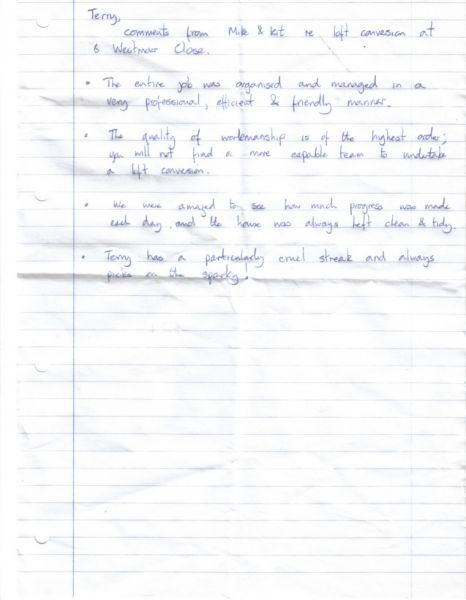 Terry,
comments from Mike & Kit re loft conversion at
6 Westmoor Close.
• The entire job was organised and managed in a
very professional, efficient & friendly manner.
• The quality of workmanship is of the highest order;
you will not find a more capable team to undertake
a loft conversion.
• We were amazed to see how much progress was made
each day and the house was always left clean & tidy.
• Terry has a particularly cruel streak and always
picks on the sparky!